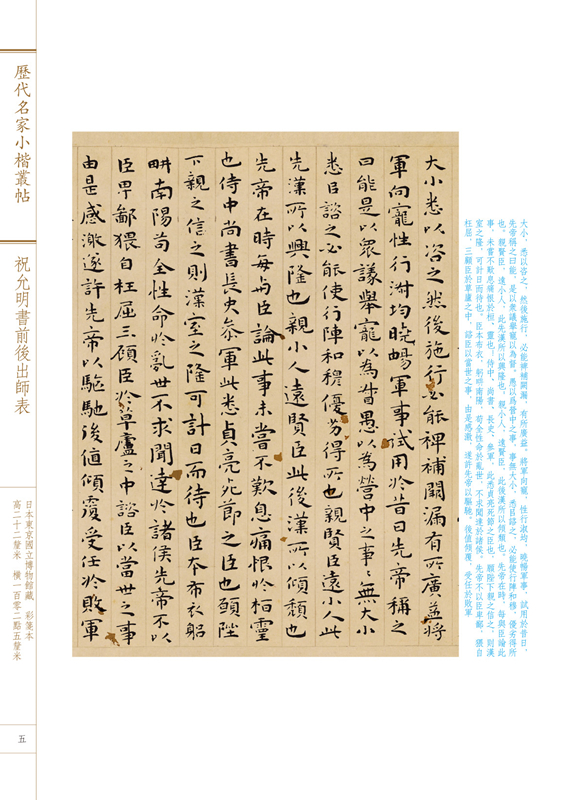 大小，悉以咨之，然後施行，必能裨補闕漏，有所廣益。將軍向寵，性行淑均，曉暢軍事，試用於昔日，
先帝稱之曰能，是以衆議舉寵以爲督。愚以爲營中之事，事無大小，悉目諮之，必能使行陣和穆，優劣得所
也。親賢臣，遠小人，此先漢所以興隆也。親小人，遠賢臣，此後漢所以傾頹也。先帝在時，每與臣論此
事，未嘗不歎息痛恨於桓、靈也。侍中、尚書、長史、參軍，此悉貞亮死節之臣也，願陛下親之信之，則漢
室之隆，可計日而待也。臣本布衣，躬畊南陽，苟全性命於亂世，不求聞達於諸侯。先帝不以臣卑鄙，猥自
枉屈，三顧臣於草廬之中，諮臣以當世之事。由是感激，遂許先帝以驅馳。後值傾覆，受任於敗軍
大小悉以咨之然後施行必能裨補闕漏有所廣益將
軍向寵性行淑均曉暢軍事試用於昔日先帝稱之
曰能是以衆議舉寵以爲督愚以爲營中之事〻無大小
悉目諮之必能使行陣和穆優劣得所也親賢臣遠小人此
先漢所以興隆也親小人遠賢臣此後漢所以傾頹也
先帝在時每與臣論此事未嘗不歎息痛恨於桓靈
也侍中尚書長史參軍此悉貞亮死節之臣也願陛
下親之信之則漢室之隆可計日而待也臣本布衣躬
畊南陽苟全性命於亂世不求聞達於諸侯先帝不以
臣卑鄙猥自枉屈三顧臣於草廬之中諮臣以當世之事
由是感激遂許先帝以驅馳後值傾覆受任於敗軍
歷代名家小楷叢帖
祝允明書前後出師表
日本東京國立博物館藏 彩箋本
高二十二釐米 橫一百零二點五釐米
五